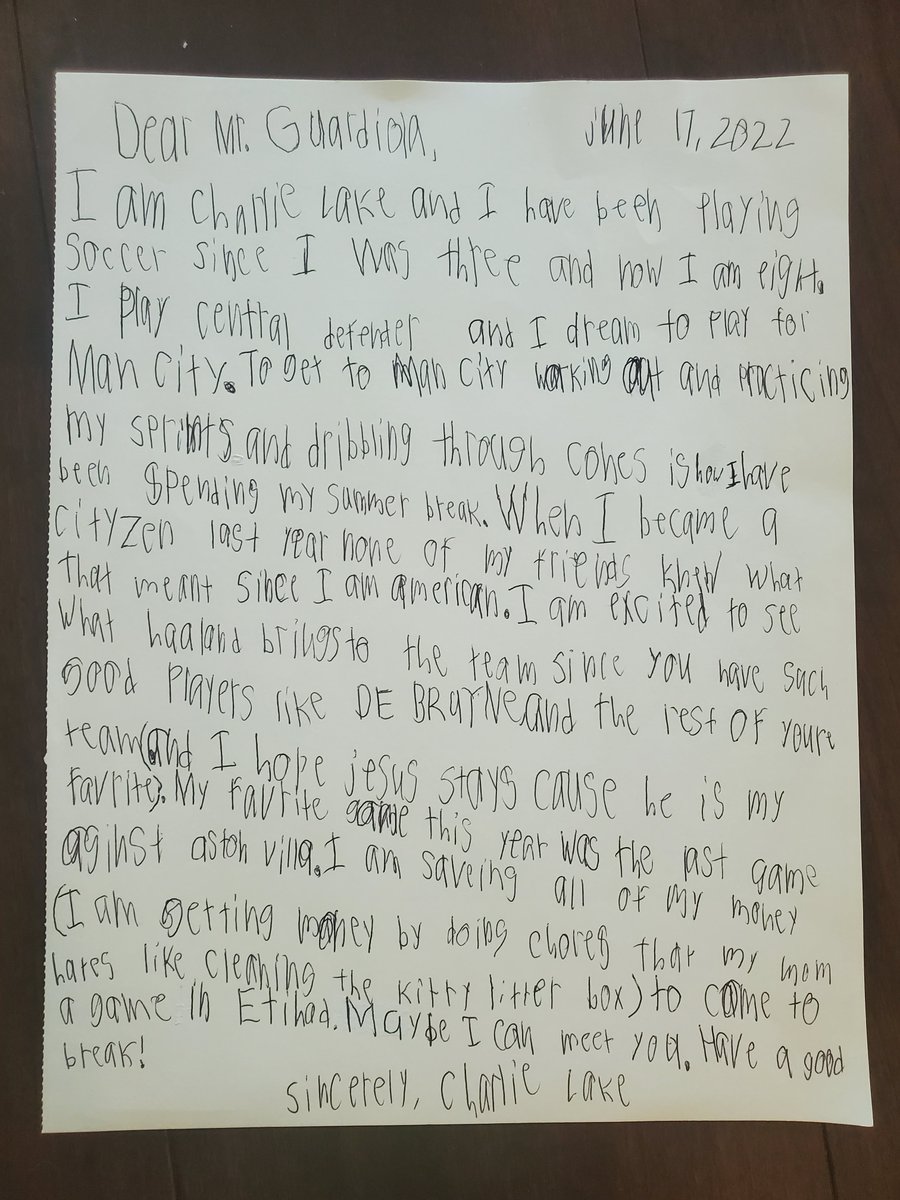 Dear Mr. Guardiola, June 17, 2022
I am Charlie Lake and I have been playing
Soccer since I was three and now I am eight.
I play central defender and I dream to play for
Man City. To get to Man City working out and practicing
my sprints and dribbling through cones is how I have
been spending my summer break. When I became a
CITYZEN last year none of my friends knew what
that meant since I am american. I am excited to see
what haaland brings to the team since you have such
good players like DE BRUYNE and the rest of youre
team (and I hope jesus stays cause he is my
favrite). My favrite game this year was the last game
aginst aston villa. I am saveing all of my money
(I am getting money by doing chores that my mom
hates like cleaning the kitty litter box) to come to
a game in Etihad. Maybe I can meet you. Have a good
break!
sincerely, Charlie Lake